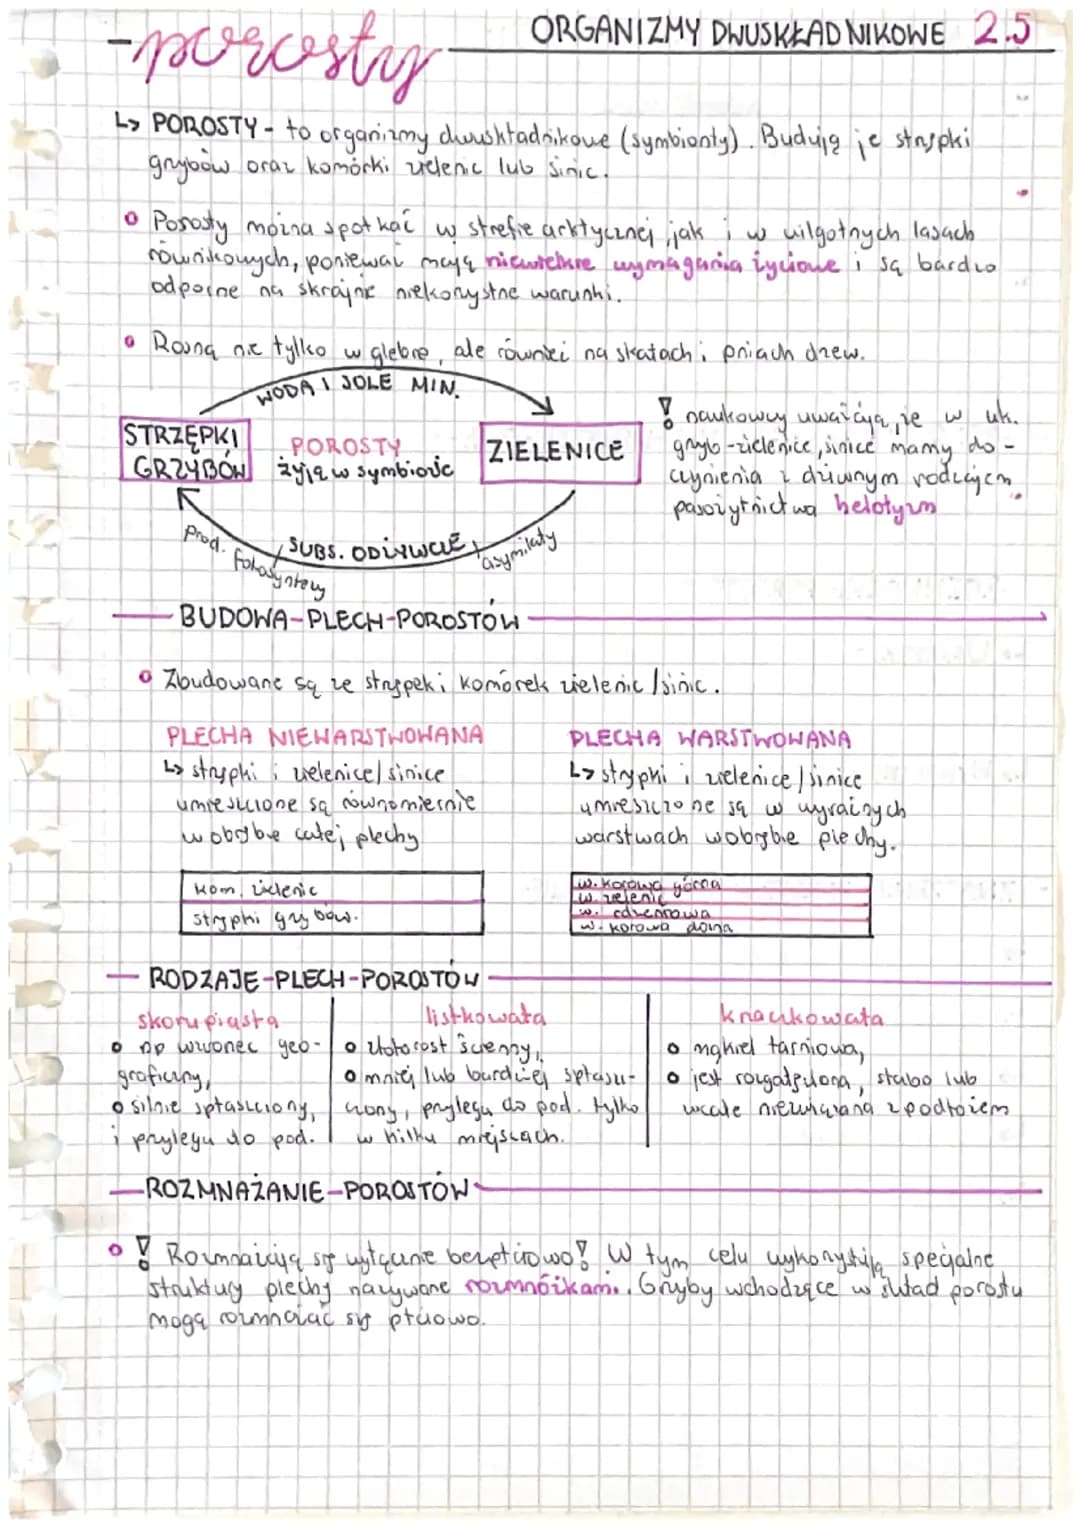 -porosty
ORGANIZMY DWUSKŁADNIKOWE 2.5
↳ POROSTY - to organizmy dwuskładnikowe (symbionty). Budują je strzępki
grzybów oraz komórki zielenic lub sinic.
Porosty można spotkać w strefie arktycznej jak i w wilgotnych lasach
równikowych, ponieważ mają niewielkie wymagania życiowe i są bardzo
odporne na skrajnie niekorzystne warunki.
Rosną nie tylko w glebie, ale również na skałach i pniach drzew.
WODA I SOLE MIN.
STRZĘPKI
GRZYBÓW
POROSTY
żyją w symbiozie
ZIELENICE
prod. fotosyntezy
SUBS. ODŻYWCZE
asymilaty
! naukowcy uważają, że w uk.
grzyb-zielenice, sinice mamy do-
czynienia z dziwnym rodzajem
pasożytnictwa helotyzm
BUDOWA-PLECH-POROSTÓW
Zbudowane są ze strzępek i komórek zielenic/sinic.
PLECHA NIEWARSTWOWANA
↳ strzępki i zielenice/sinice
umieszczone są równomiernie
w obrębie całej plechy
kom. zielenic
strzępki grzybów.
PLECHA WARSTWOWANA
↳ strzępki i zielenice/sinice
umieszczone są w wyraźnych
warstwach w obrębie plechy.
w. korowa górna
w. zielenic
w. rdzeniowa
w. korowa dolna
RODZAJE-PLECH-POROSTÓW
skorupiasta
np wzorzec geo-
graficzny,
silnie spłaszczony,
i przylega do pod.
listkowata
złotorost ścienny,
mniej lub bardziej spłasz-
czony, przylega do pod. tylko
w kilku miejscach.
krzaczkowata
mąkiel tarniowa,
jest rozgałęziona, słabo lub
wcale niezwiązana z podłożem
ROZMNAŻANIE-POROSTÓW
! Rozmnażają się wyłącznie bezpłciowo! W tym celu wykorzystują specjalne
struktury plechy nazywane rozmnóżkami. Grzyby wchodzące w skład porostu
mogą rozmnażać się płciowo.